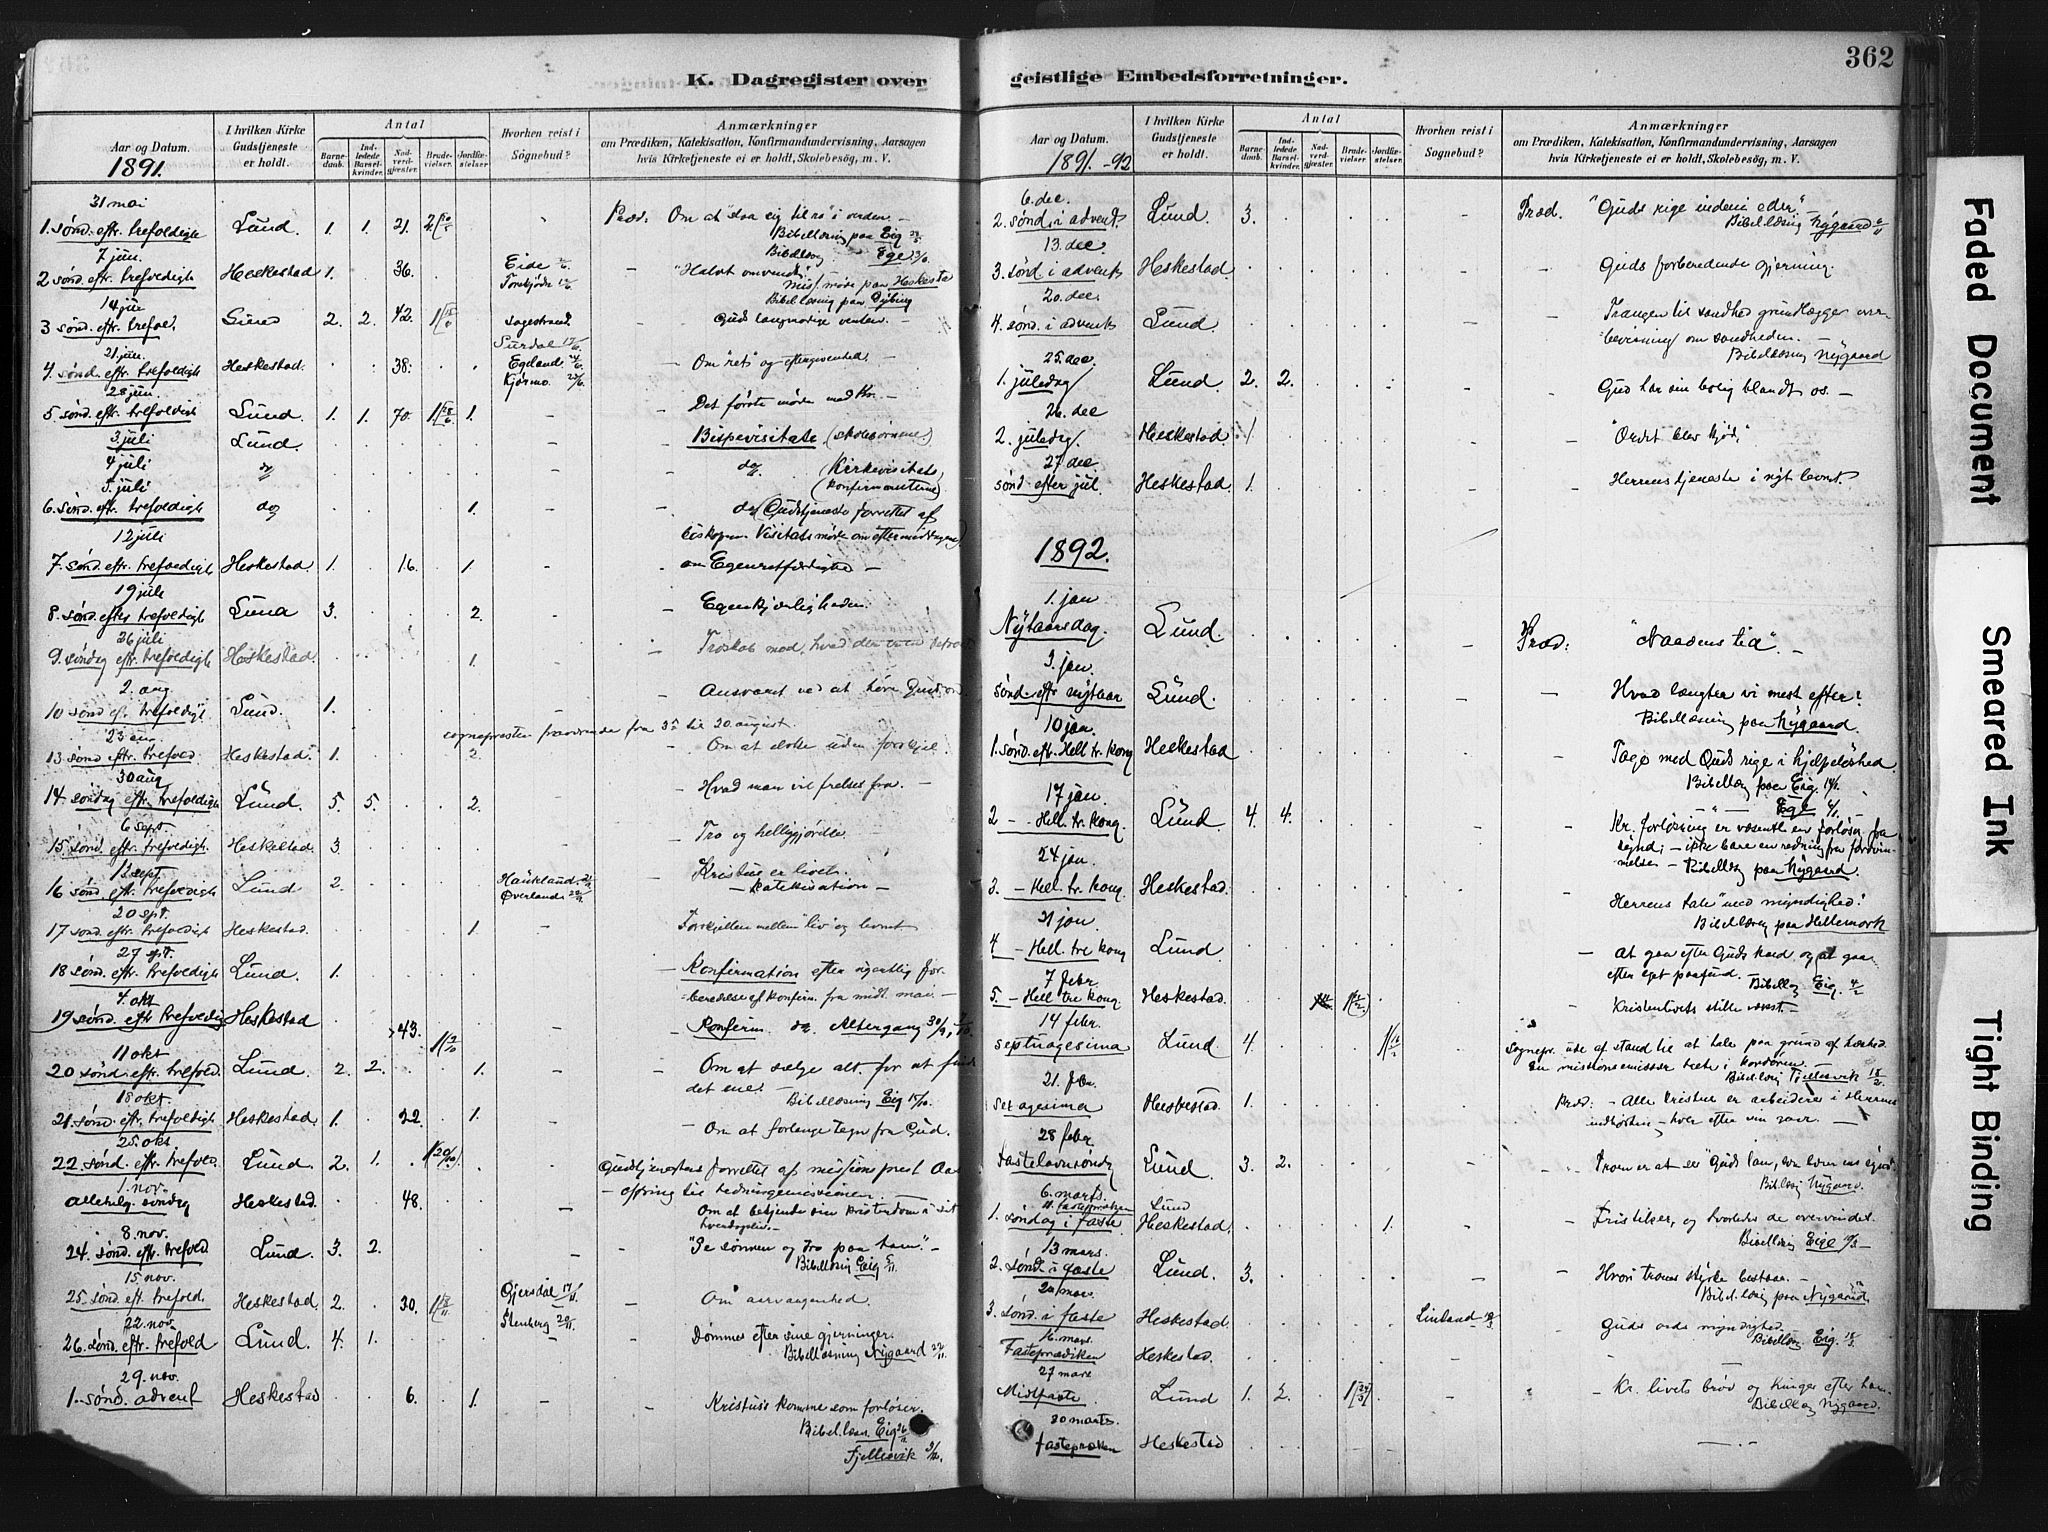 362
K. Dagregister over geistlige Embedsforretninger.
Aar og Datum. 1891.
I hvilken Kirke Gudstjeneste er holdt.
Antal
Barnedaab.
Indledede Barselkvinder.
Nadverdgjæster.
Brudevielser.
Jordfæstelser
Hvorhen reist i Sognebud?
Anmærkninger
om Prædiken, Katekisation, Konfirmandundervisning, Aarsagen
hvis Kirketjeneste ei er holdt, Skolebesög, m. V.
31 mai
1. sønd. eftr. trefoldigh Lund. 1. 1. 21. Præd. Om at "slaa sig til ro" i verden. –
Bibellæsning paa Eig
7 jun. Bibellæsn Ege
2 sønd. eftr. trefoldigh Heskestad 1. 36. Eide "Halvt omvendt."
Miss. møde paa Heskestad
14 jun Bibellæsnig paa Dybing
3 sønd. eftr. trefold. Lund 2. 2. 42. Guds langmodige venten. –
21 jun. Surdal
4. sønd. eftr. trefoldigh Heskestad. 38. Egeland – Om "ret" og eftergivenhed.
28 jun.
5 sønd. eftr. trefoldigh Lund. 1. 1. 70. 1 1. – Det første møde med Kr. –
3 juli Lund. – Bispevisitats (skolebørnene.)
4 juli do – do. (Kirkevisitats
5. juli (konfirmanterne)
6. sønd. eftr. trefoldigh do 1. do (Gudstjeneste forrettet af
12 juli biskopen. Visitatsmøde om eftermiddagen)
7. sønd. eftr. trefoldigh Heskestad. 1. 16. 1. om Egenretfærdighed –
19 juli
8. sønd. efter trefoldigh Lund 3. 2. – Egenkjærligheden.
26 juli
9. søndag eftr. trefoldigh Heskestad. 1. Troskab mod, hvad der
2. aug.
10 sønd eftr. trefoldigh Lund. 1. – Ansvaret ved at høre Guds ord
sognepresten fraværende fra 3 til 20 august.
23 aug
13 sønd eftr. trefold. Heskestad. 1. 2. – Om at elske uden forskjel.
30 aug
14. søndag eftr. trefoldigh Lund. 5 5. 2. – Hvad man vil frelses fra. –
6 sept.
15. sønd. eftr. trefoldigh. Heskestad 3. – Tro og helliggjørelse.
13 sept.
16 sønd. eft. trefoldigh Lund 2. Haukland – Kristus er livet.
Øverland – Katekisation –
20 spt.
17 sønd. eftr. trefoldigh Heskestad. 1. – Forskjellen mellem "liv" og levnet
27 spt.
18 sønd. eftr. trefoldigh Lund. 1. – Konfirmation efter ugentlig for-
=beredelse af konfirm. fra midt. mai. –
4. okt
19 sønd. eftr trefoldig Heskestad 43. – Konfirm. og Altergang 30/9
11 okt
20 sønd. eftr. trefold. Lund. 2. 2. 1. – Om at sælge alt, for at finde
det ene. – Bibellæsning Eig 15/10.
18 okt.
21. sønd. eftr. trefoldigh Heskestad 1. 22. 1. – Om at forlange tegn fra Gud.
25. okt
22. sønd. eftr. trefold. Lund. 2. 1. Gudstjenesten forrettet af missionsprest
– ofring til hedningemissionen. –
1. nov.
Allehelg. søndag Heskestad. 48. Om at bekjende sin kristendom i sit
hverdagsliv. –
8. nov.
24. sønd. eftr. trefold Lund. 3. 2. – "Se sønnen og tro paa ham". –
Bibellæsnig Eig
15. nov.
25. sønd. eft. trefold. Heskestad. 2. 30. Gjersdal – Om aarvaagenhed.
22. nov. Stenberg
26. sønd. eftr. trefold Lund. 4. 1. Dømmes efter sine gjerninger.
Bibellæsning Nygaard
29. nov.
1. sønd. advent Heskestad 6. 1. – Kristus's komme som forløser.
Bibellæsn. Eig
Fjellesvik
Aar og Datum. 1891. -92
I hvilken Kirke Gudstjeneste er holdt.
Antal
Barnedaab.
Indledede Barselkvinder.
Nadverdgjæster.
Brudevielser.
Jordfæstelser.
Hvorhen reist i Sognebud?
Anmærkninger
om Prædiken, Katekisation, Konfirmandundervisning, Aarsagen
hvis Kirketjeneste ei er holdt, Skolebesög, m. V.
6. dec.
2. sønd. i advent. Lund. 3. – Præd. "Guds rige indeni eder" –
Bibellæsnig Nygaard
13. dec
3. sønd i advents Heskestad. – Guds forberedende gjerning.
20. dec.
4. sønd. i advents Lund – Trangen til sandhed grundlægger over-
bevisning om sandheden. –
Bibellæsning Nygaard
25. dec
1. juledag Lund 2. 2. Gud har sin bolig blandt os. –
26. dec
2. juledag Heskestad 1 "Ordet blev kjød,"
27 dec
sønd. efter jul. Heskestad. 1. Herrens tjeneste i nyt levnt.
1892.
1. jan
Nytaarsdag. Lund. Præd: "Naadens tid". –
3. jan
sønd. eftr nytaar Lund. – Hvad længter vi mest efter?
Bibellæsning paa Nygaard.
10 jan.
1. sønd. eft. Hell. tr. kong Heskestad – Tage mod Guds rige i hjelpeløshed.
Bibellæsn paa Eig. 14/1.
17 jan – " – Ege
2 – – Hell. tr. kong. Lund. 4. 4. – Kr. forløsning er væsentl. en forløsn. fra
synd; – ikke bare en redning fra fordøm-
melse – Bibellæsn paa Nygaard.
24 jan.
3. – Hell. tr. kong. Heskestad. Herrens tale "med myndighed."
Bibellæsn paa Hellemork
31 jan
4 – Hell. tre kong Lund – At gaa efter Guds haand og at gaa
efter eget paafund. Bibellæsn Eig. 4/2
7 febr
5. – Hell tre kong. Heskestad. – Kristenlivets stille vækst. –
14 febr
septuagesima Lund 4. Sognepr. ude af stand til at tale paa grund af hæshed.
Bibellæsn Fjellesvik
21. feb
sexagesima Heskestad. 1. Præd: – Alle kristne er arbeidere i Herrens
indhøsten – hver efter sin gave. –
28 febr
fastelavnsøndg Lund. 3. 2. Troen er at se "Guds lam,
Bibellæsn Nygaard.
6. marts. II. fasteprædiken Lund
1. søndag i faste Heskestad. 1. – Fristelser, og hvorledes de overvindes.
Bibellæsn Eige
13 mars.
2. sønd. i faste Lund. 3. – Hvori troens styrke bestaar. –
Bibellæsn paa Nygaard
20 mars.
3. sønd. i faste Heskestad. – Guds ords myndighed.
16. mars. Bibellæsn Eig.
Fasteprædiken Heskestad.
27 mars
Midfaste Lund 1. 2. – Kr. livets brød og hunger efter ham
Bibellæsn Nygaard.
30 marts.
fastepræken Heskestad – . –
Faded Document
Smeared Ink
Tight Binding